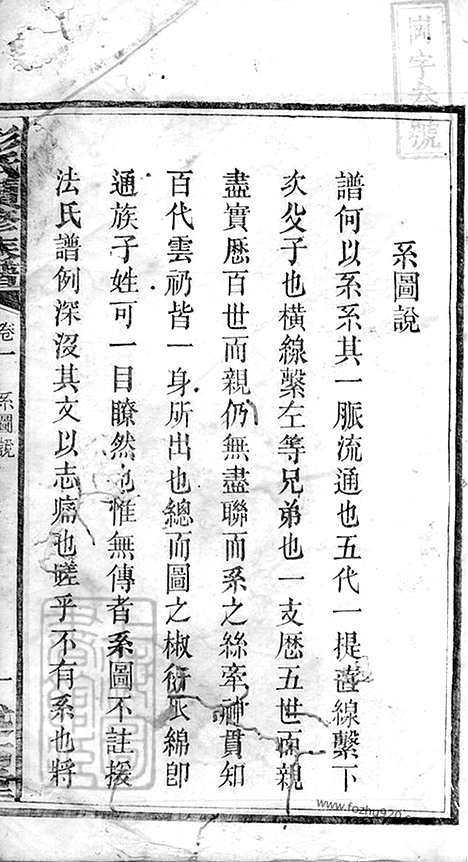 系圖說
譜何以系系其一脈流通也五代一提直線繫下
次父子也橫線繫左等兄弟也一支歷五世而親
盡實歷百世而親仍無盡聯而系之絲牽神貫知
百代雲礽皆一身所出也總而圖之椒衍瓜綿即
通族子姓可一目瞭然也惟無傳者系圖不註援
法氏譜例深沒其文以志痛也嗟乎不有系也將
氏續修族譜
卷一
系圖說
一
www.fozhu920.com